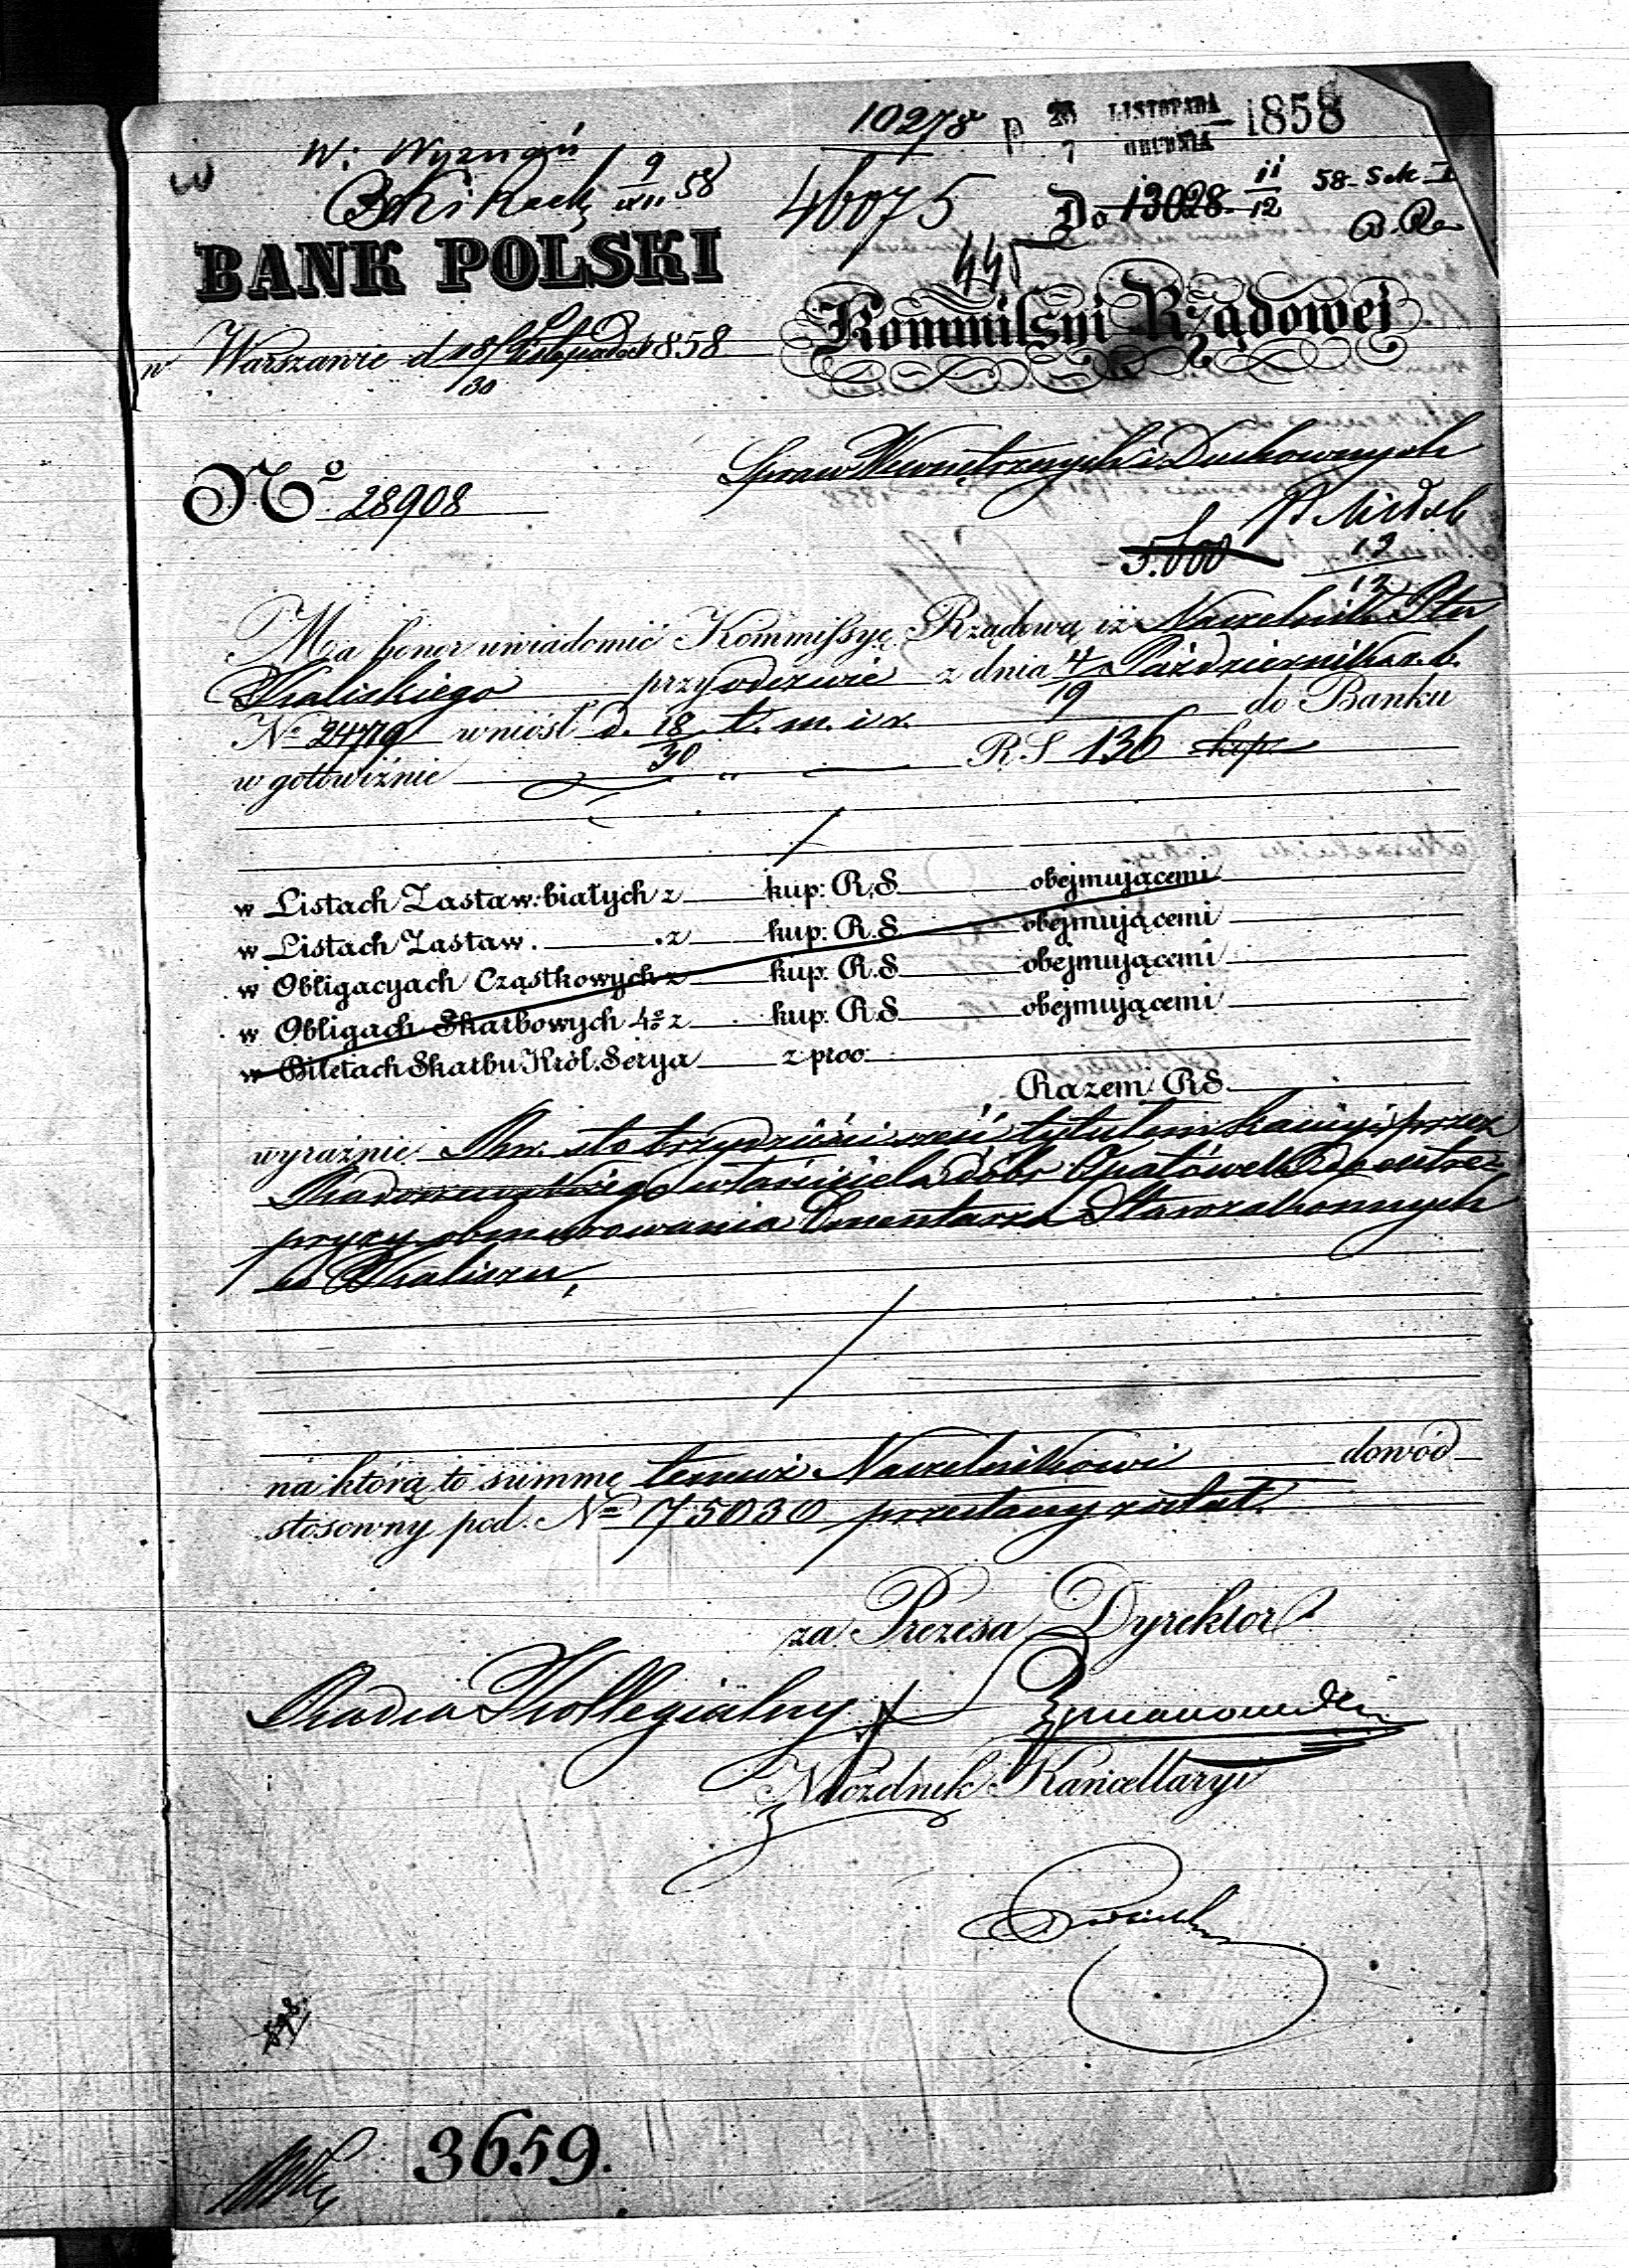 10278
P 25 LISTOPADA 1858
7 GRUDNIA
W: Wyznań
9/XII 58
46075
Do 13028 11/12 58 Sek I
BANK POLSKI
445
Kommissyi Rządowej
w Warszawie d 18/30 Listopada 1858
Spraw Wewnętrznych i Duchownych
No. 28908
5.000
12/12
Ma honor uwiadomić Kommissyę Rządową iż Naczelnik Ptu
Kaliskiego przy odezwie z dnia 7/19 Października r. b.
No 24719 wniósł d. 18/30 t. m. i r. do Banku
w gotowiźnie " RS 136 kop
w Listach Zastaw: białych z kup: R.S obejmującemi
w Listach Zastaw. z kup: R.S obejmującemi
w Obligacyach Cząstkowych z kup: R.S obejmującemi
w Obligach Skarbowych 4% z kup: R.S obejmującemi
w Biletach Skarbu Król. Serya z proc:
Razem RS
wyraźnie Rsr. sto trzydzieści sześć tytułem kaucyi przez
właściciela dóbr Opatówek do entrep
pryzy obmurowania Cmentarza Starozakonnych
w Kaliszu,
na którą to summę temuż Naczelnikowi dowód
stosowny pod No 75030 przesłany został.
za Prezesa Dyrektor
Radca Kollegialny
Naczelnik Kancellaryi
3659.